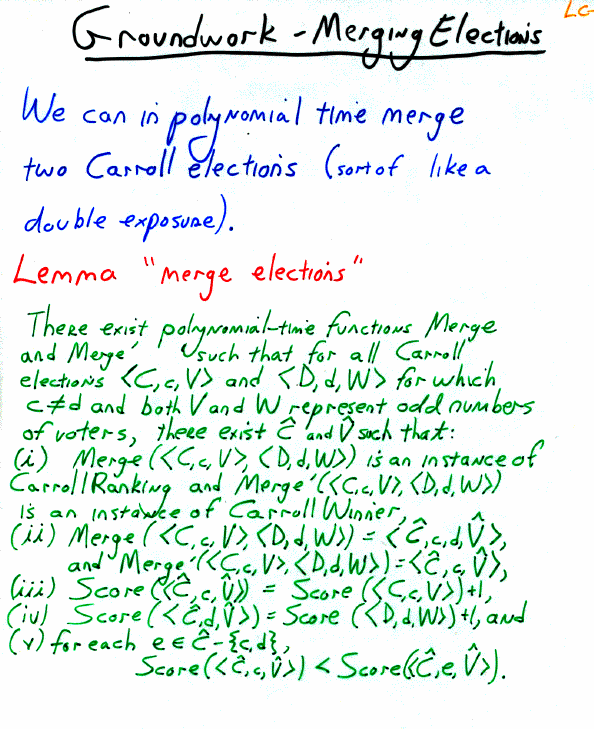 LG-
Groundwork - Merging Elections
We can in polynomial time merge
two Carroll elections (sort of like a
double exposure).
Lemma "merge elections"
There exist polynomial-time functions Merge
and Merge' such that for all Carroll
elections <C,c,V> and <D,d,W> for which
c≠d and both V and W represent odd numbers
of voters, there exist Ĉ and V̂ such that:
(i) Merge(<C,c,V>,<D,d,W>) is an instance of
CarrollRanking and Merge'(<C,c,V>,<D,d,W>)
is an instance of CarrollWinner,
(ii) Merge(<C,c,V>,<D,d,W>) = <Ĉ,c,d,V̂>,
and Merge'(<C,c,V>,<D,d,W>) = <Ĉ,c,V̂>,
(iii) Score(<Ĉ,c,V̂>) = Score(<C,c,V>)+1,
(iv) Score(<Ĉ,d,V̂>) = Score(<D,d,W>)+1, and
(v) for each e ∈ Ĉ-{c,d},
Score(<Ĉ,c,V̂>) < Score(<Ĉ,e,V̂>).